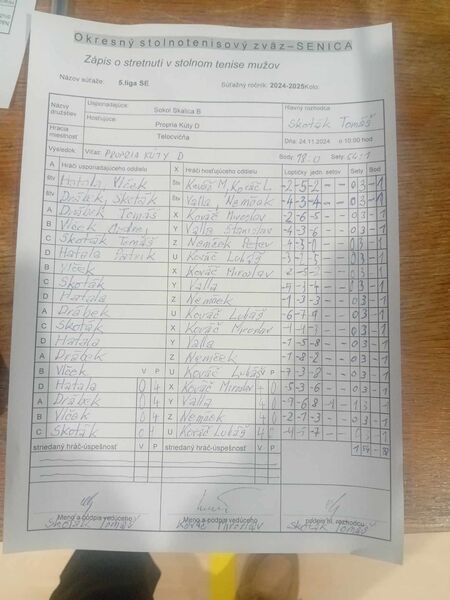 Okresný stolnotenisový zväz–SENICA
Zápis o stretnutí v stolnom tenise mužov
Názov súťaže: 5.liga SE Súťažný ročník: 2024-2025 Kolo:
Názvy družstiev Usporiadajúce: Sokol Skalica B Hlavný rozhodca
Hosťujúce: Propria Kúty D Skoták Tomáš
Hracia miestnosť Telocvičňa Dňa: 24.11.2024 o 10:00 hod
Výsledok Víťaz: PROPRIA KÚTY D Body: 18:0 Sety: 54:1
A Hráči usporiadajúceho oddielu X Hráči hosťujúceho oddielu Loptičky jedn. setov Sety Body
štv Hatala, Vlček štv Kováč M, Kováč L -2 -5 -2 - - 0 3 - 1
štv Drábek, Skoták štv Valla, Nemček -4 -3 -4 - - 0 3 - 1
A Drábek Tomáš X Kováč Miroslav -2 -6 -5 - - 0 3 - 1
B Vlček Y Valla Stanislav -4 -3 -6 - - 0 3 - 1
C Skoták Tomáš Z Nemček Peter -4 -3 -0 - - 0 3 - 1
D Hatala Patrik U Kováč Lubáš 0 3 - 1
B Vlček X Kováč Miroslav 0 3 - 1
C Skoták Y Valla 0 3 - 1
D Hatala Z Nemček -1 -3 -3 - - 0 3 - 1
A Drábek U Kováč Lubáš -6 -7 -9 - - 0 3 - 1
C Skoták X Kováč Miroslav 0 3 - 1
D Hatala Y Valla -1 -5 -8 - - 0 3 - 1
A Drábek Z Nemček -1 -8 -2 - - 0 3 - 1
B Vlček V P U Kováč Lubáš V P -7 -3 -8 - - 0 3 - 1
D Hatala 0 4 X Kováč Miroslav 4 0 -5 -3 -6 - - 0 3 - 1
A Drábek 0 4 Y Valla 4 0 -9 -6 8 - 1 3 - 1
B Vlček 0 4 Z Nemček 4 0 -2 -1 -3 - - 0 3 - 1
C Skoták 0 4 U Kováč Lubáš 4 0 0 3 - 1
striedaný hráč-úspešnosť V P striedaný hráč-úspešnosť V P 1 54 - 18
Meno a podpis vedúceho Meno a podpis vedúceho podpis hl. rozhodcu
Skoták Tomáš Kováč Miroslav Skoták Tomáš